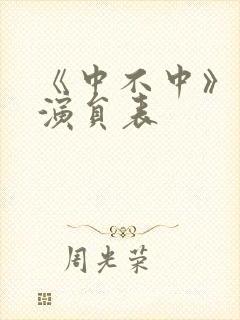 《中不中》
演员表
周光荣